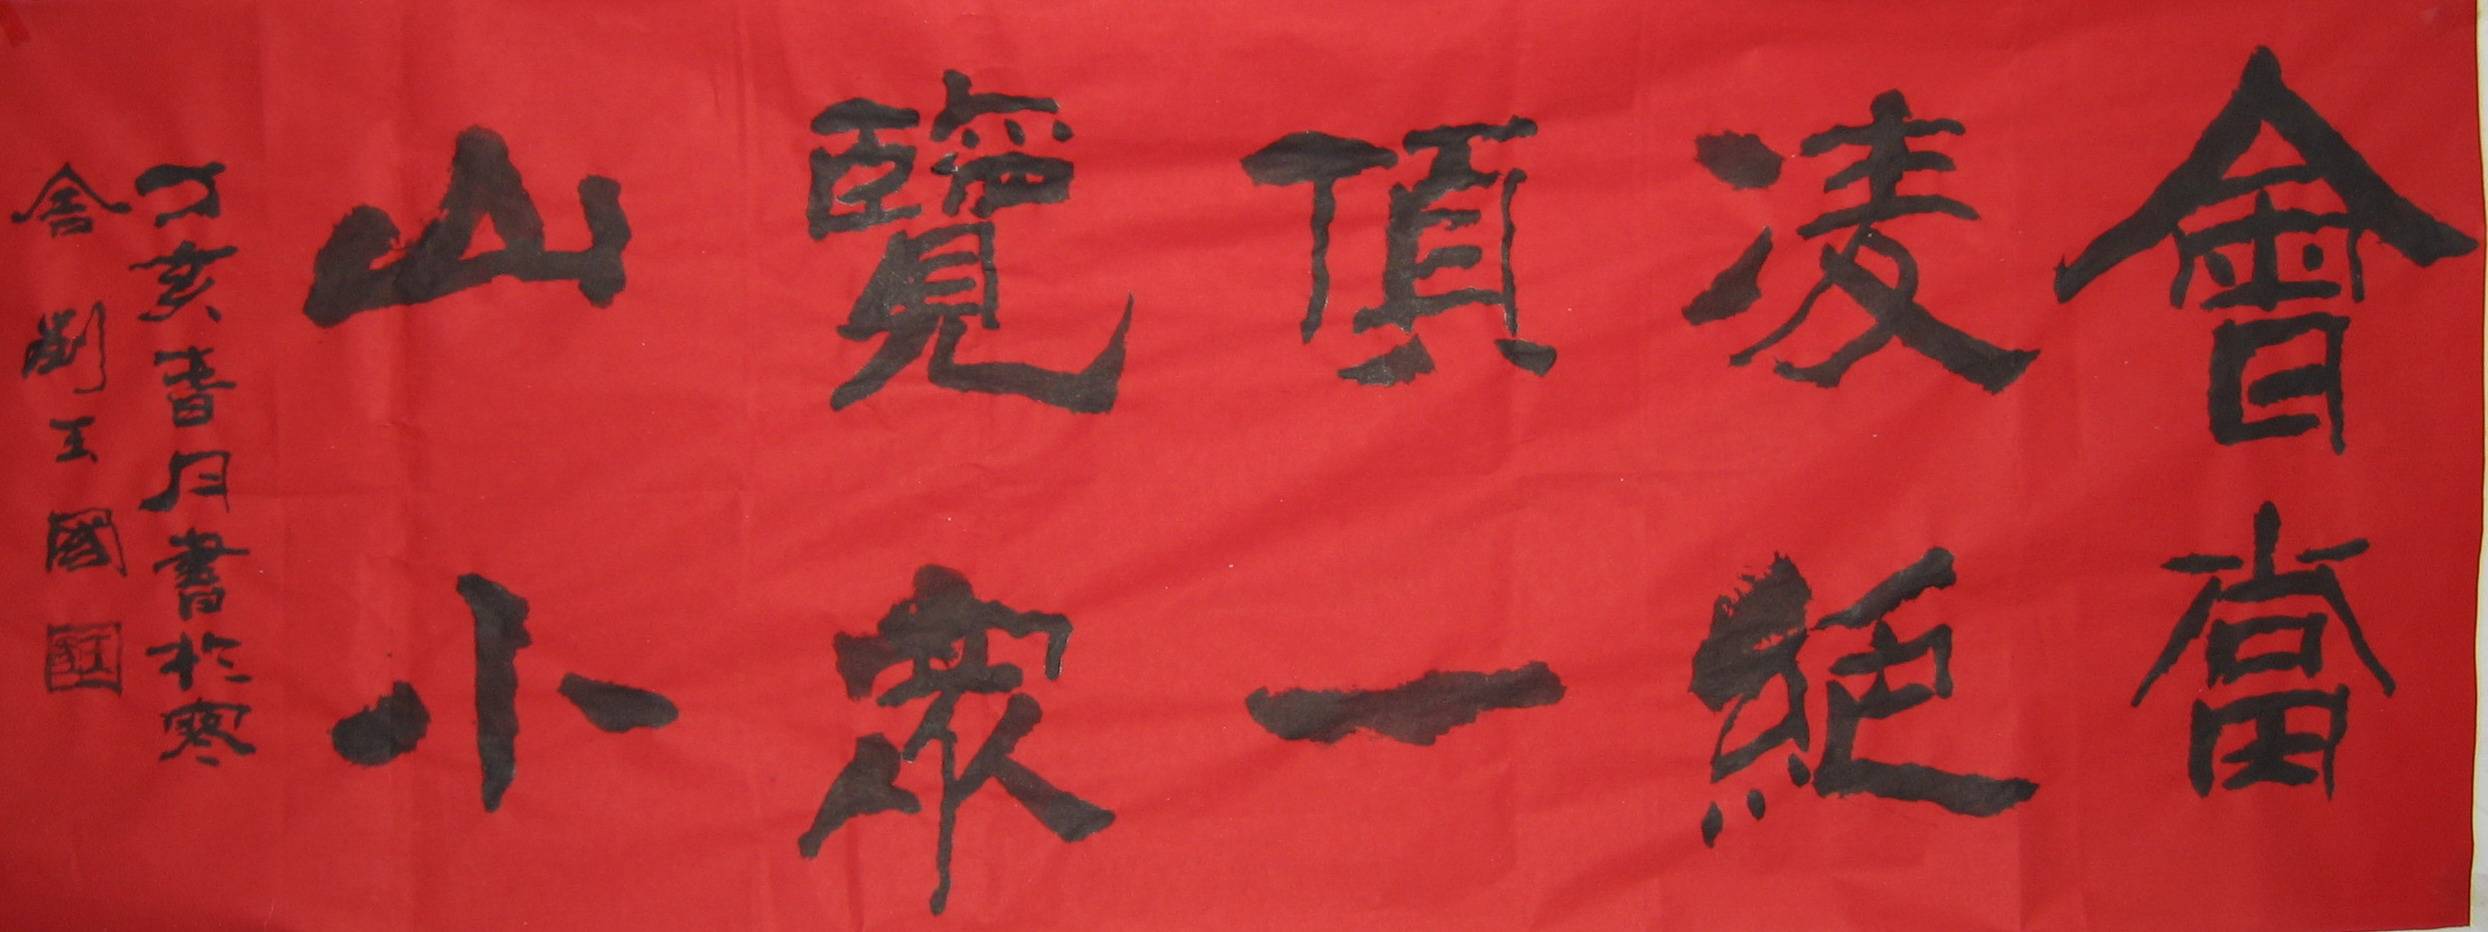 會當
凌絕
頂一
覽眾
山小
丁亥春月書於寒
舍劉玉國